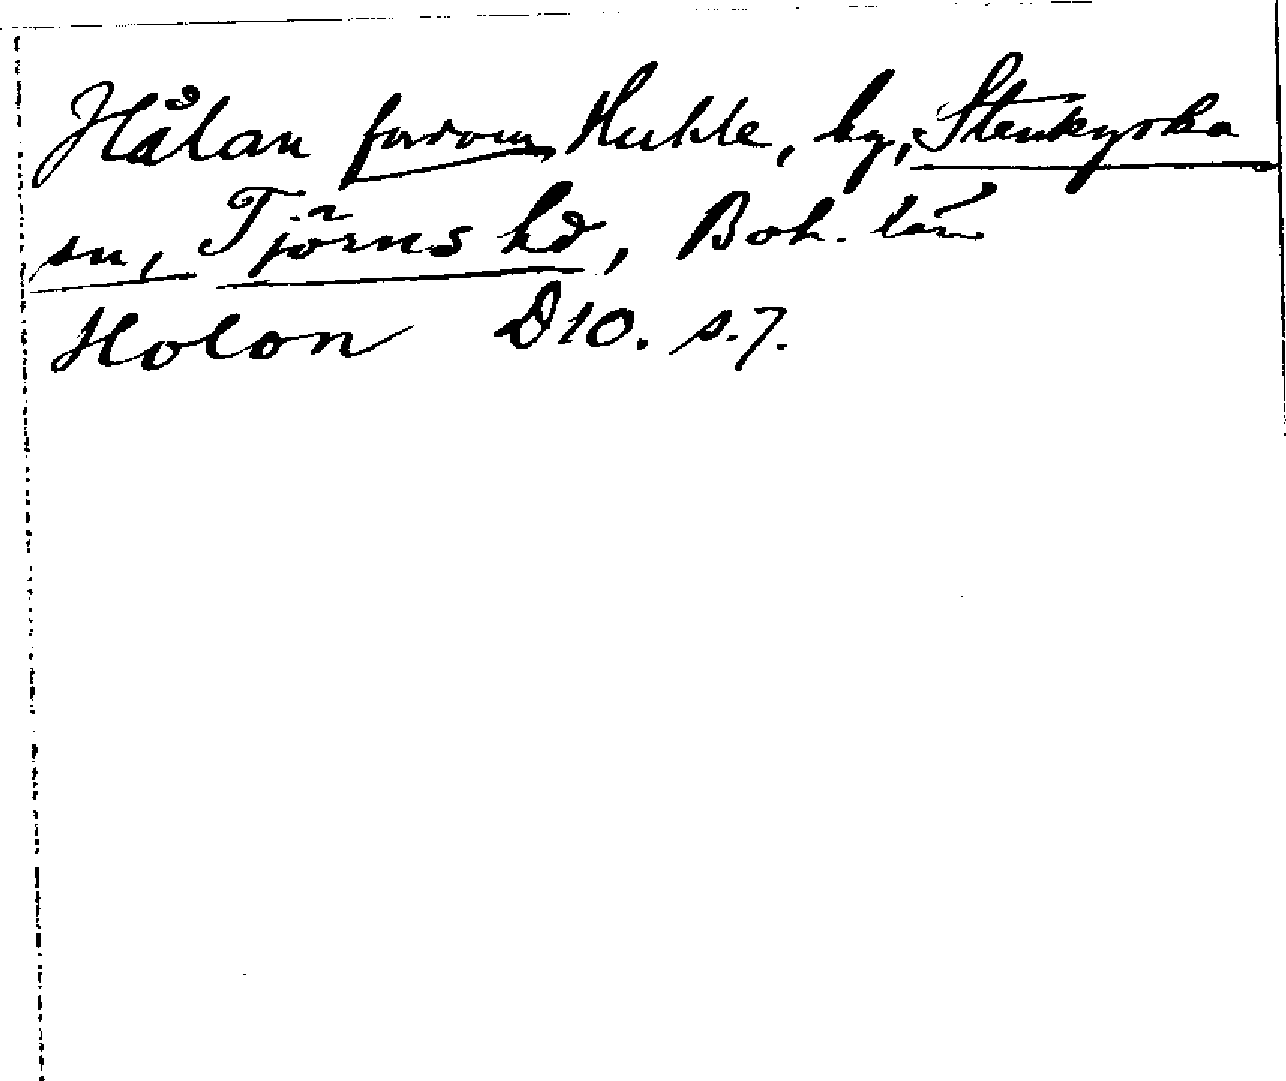 Hålan forvom Huhle, by, Stenkyrka
sn, Tjörns hd, Boh. län
Holon D10. s.7.